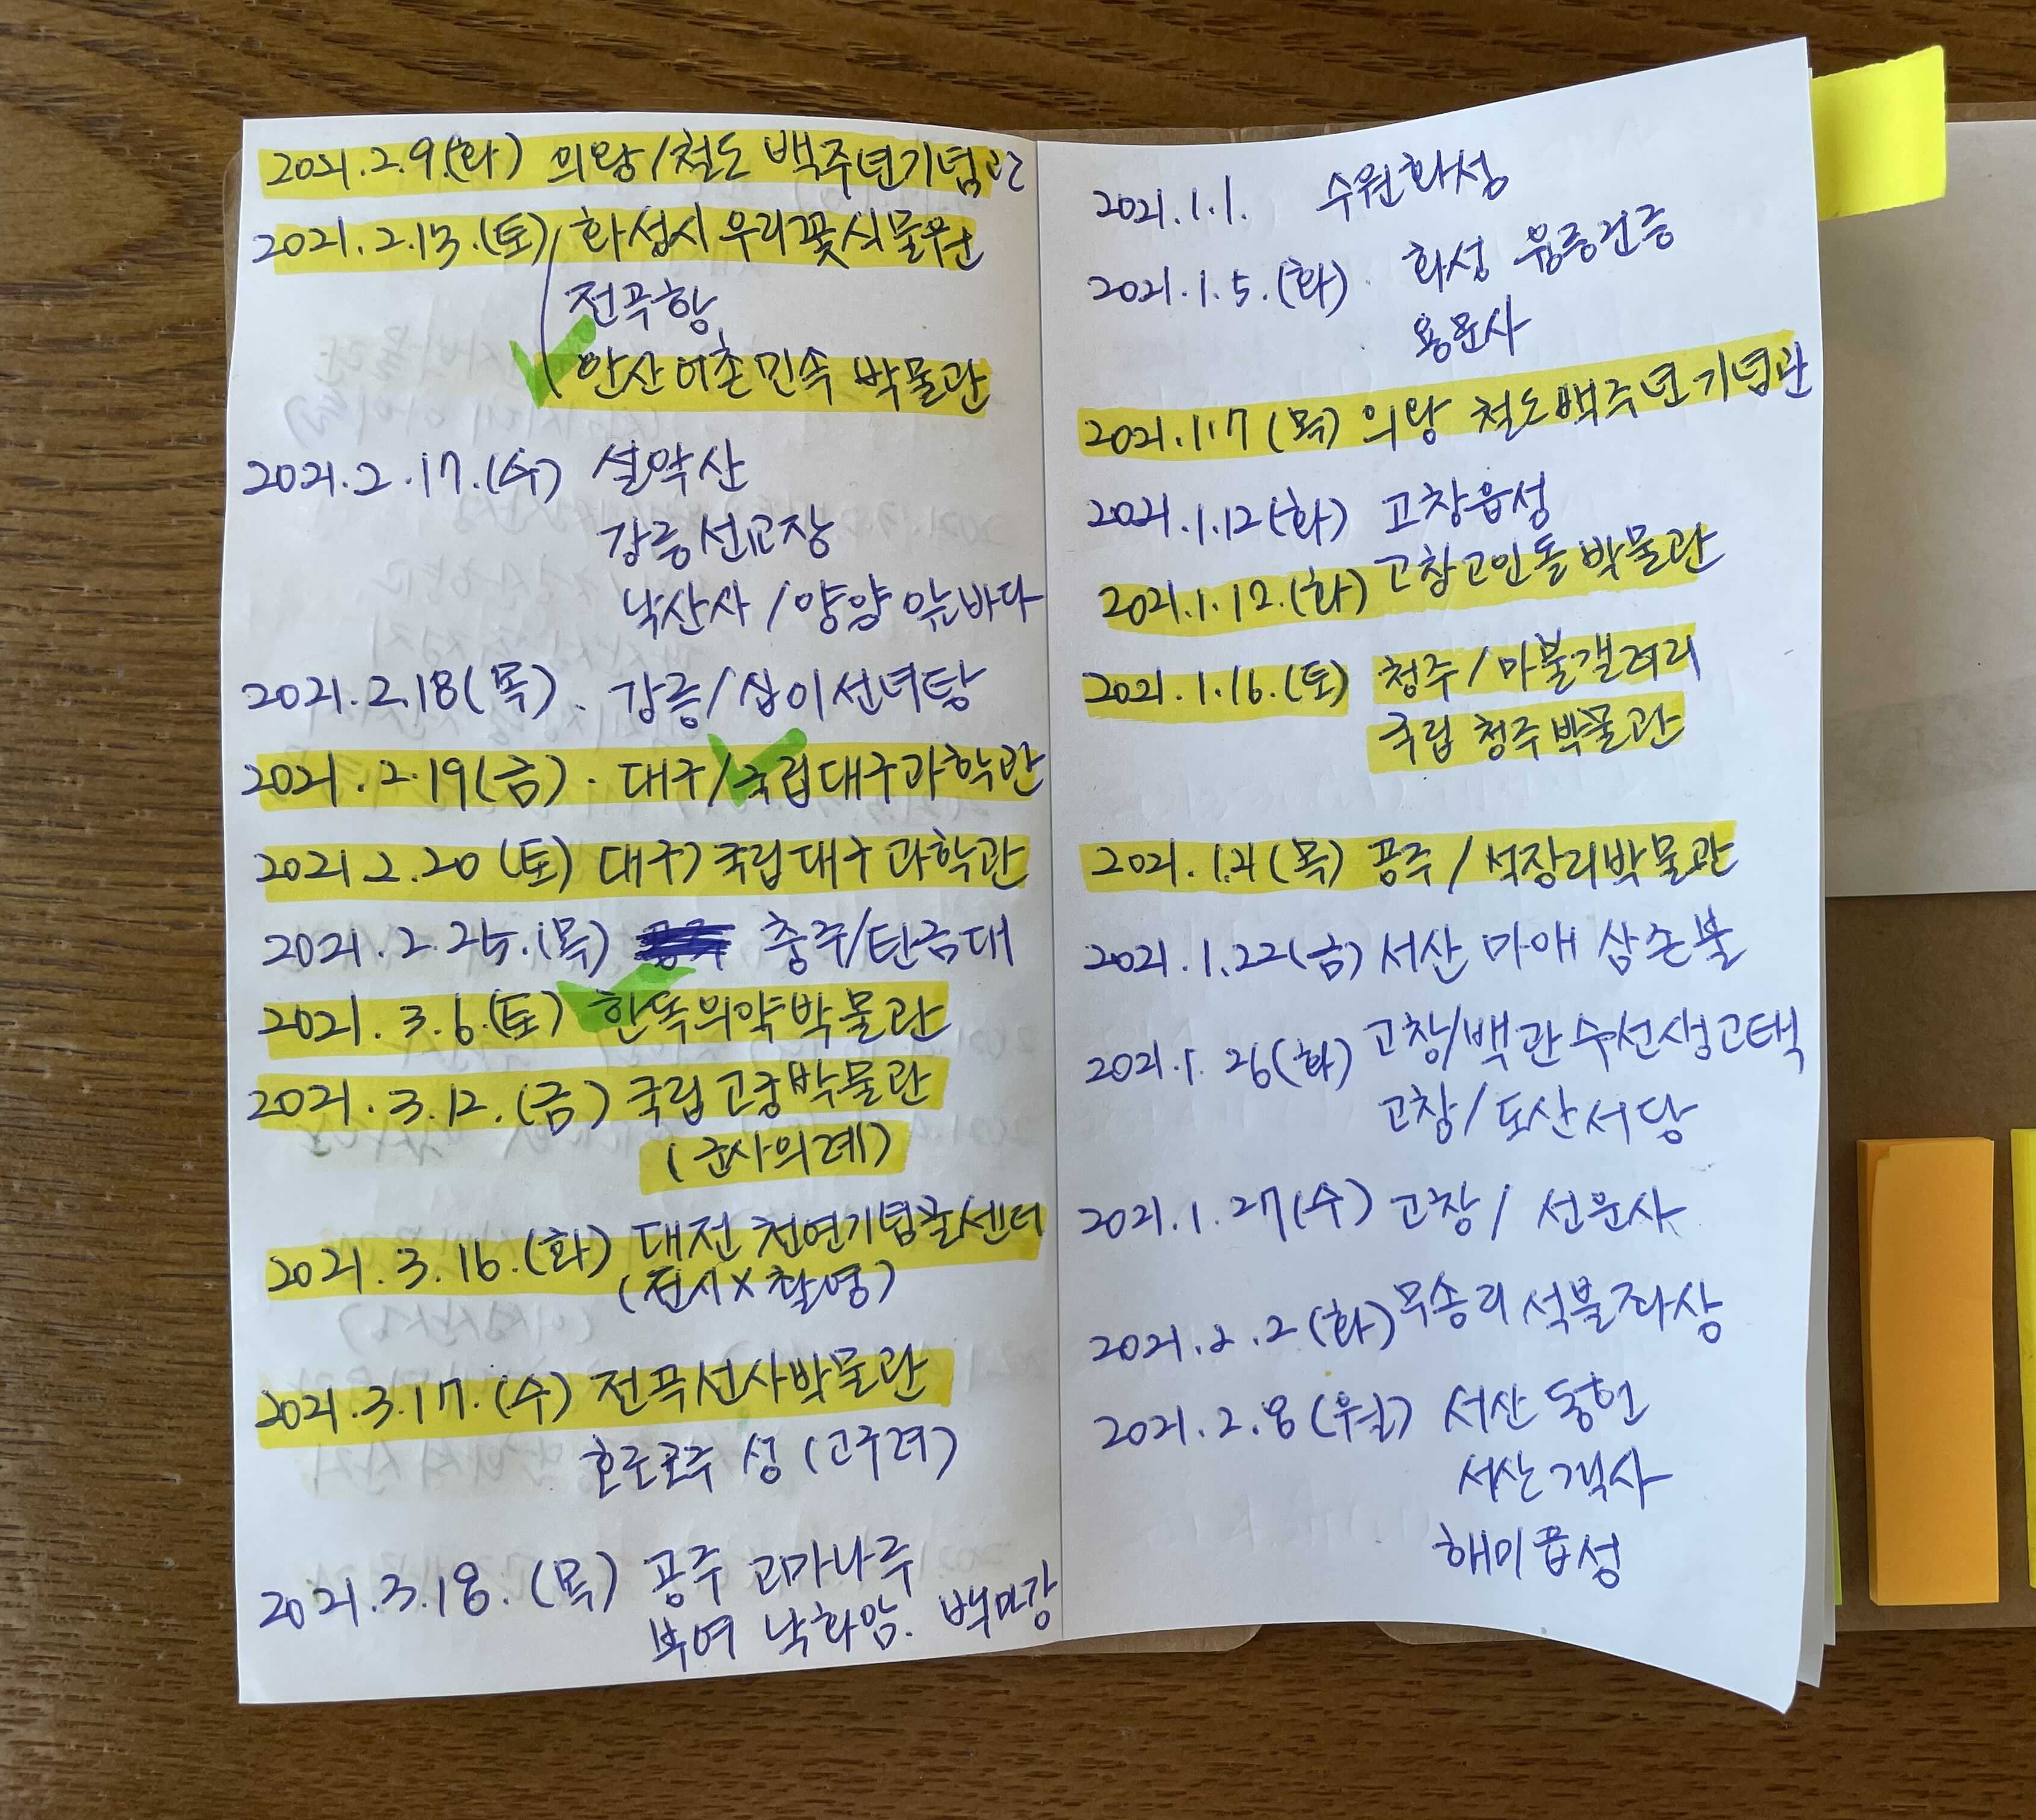 2021.2.9.(화) 의왕/철도 백주년기념관
2021.2.13.(토) 화성시 우리꽃식물원
전곡항
안산어촌민속 박물관
2021.2.17.(수) 설악산
강릉선교장
낙산사/양양 앞바다
2021.2.18(목). 강릉/십이선녀탕
2021.2.19(금). 대구/국립대구과학관
2021.2.20(토) 대구/국립대구과학관
2021.2.25.(목) 충주/탄금대
2021.3.6.(토) 한독의약박물관
2021.3.12.(금) 국립고궁박물관
(군사의례)
2021.3.16.(화) 대전 천연기념물센터
(전시X촬영)
2021.3.17.(수) 전곡선사박물관
호로고루 성 (고구려)
2021.3.18.(목) 공주 고마나루
부여 낙화암. 백마강
2021.1.1. 수원화성
2021.1.5.(화) 화성 융릉건릉
용문사
2021.1.7(목) 의왕 철도백주년기념관
2021.1.12(화) 고창읍성
2021.1.12.(화) 고창고인돌박물관
2021.1.16.(토) 청주/마불갤러리
국립 청주박물관
2021.1.21(목) 공주/석장리박물관
2021.1.22(금) 서산 마애 삼존불
2021.1.26(화) 고창/백관수선생고택
고창/도산서당
2021.1.27(수) 고창/선운사
2021.2.2(화) 무송리 석불좌상
2021.2.8(월) 서산동헌
서산객사
해미읍성